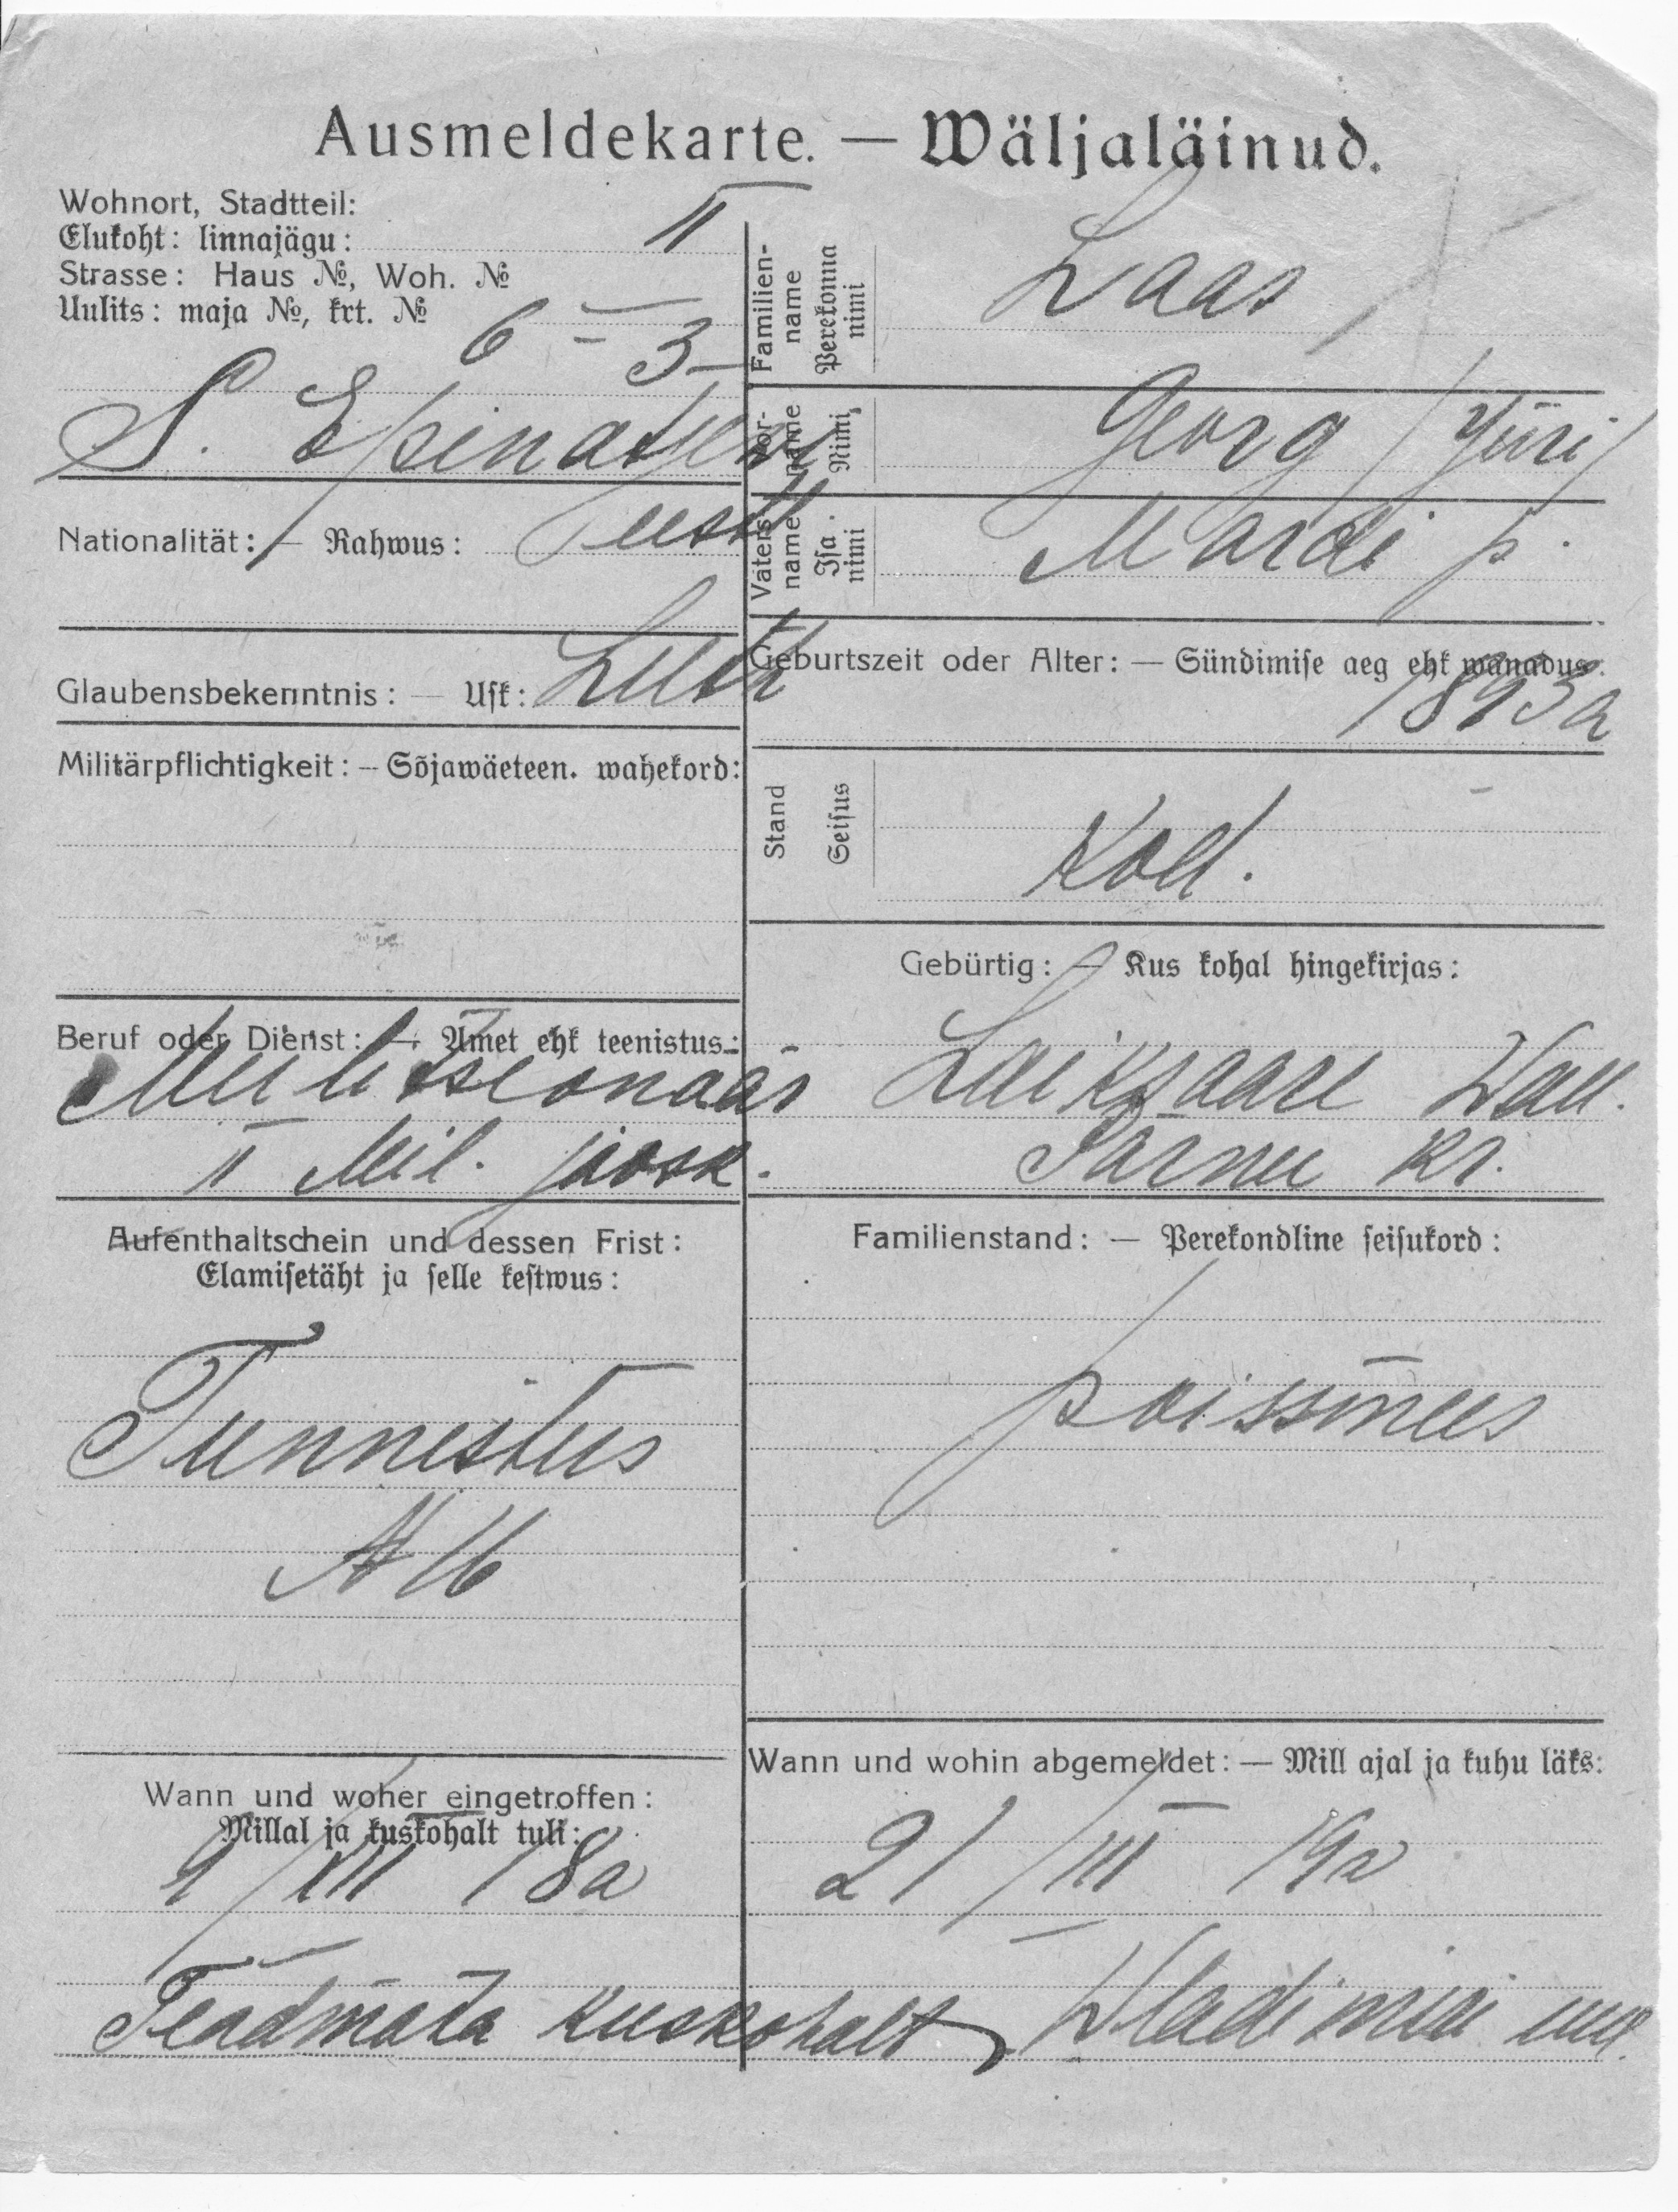 Ausmeldekarte. — Wäljaläinud.
Wohnort, Stadtteil:
Elukoht: linnajägu: II
Strasse: Haus №, Woh. №
Uulits: maja №, krt. №
6 – 3
S. Epinatjew
Nationalität: — Rahwus: eesti
Glaubensbekenntnis: — Usk: Luth
Militärpflichtigkeit: – Sõjawäeteen. wahekord:
Beruf oder Dienst: — Amet ehk teenistus:
Miilitsionäär
II Mil. jaosk.
Aufenthaltschein und dessen Frist:
Elamisetäht ja selle kestwus:
Tunnistus
Wann und woher eingetroffen:
Millal ja kuskohalt tuli:
18a
Teadmata kuskohalt
Familien-
name
Perekonna
nimi
Laas
Vor-
name
Nimi
Georg /Jüri/
Vaters
name
Isa
nimi
Mardi p.
Geburtszeit oder Alter: — Sündimise aeg ehk wanadus:
1893a
Stand
Seisus
Kod.
Gebürtig: — Kus kohal hingekirjas:
Laiksaare Wall.
Pärnu kr.
Familienstand: — Perekondline seisukord:
poissmees
Wann und wohin abgemeldet: — Mill ajal ja kuhu läks:
21/III 19a
Wladimiri uul.